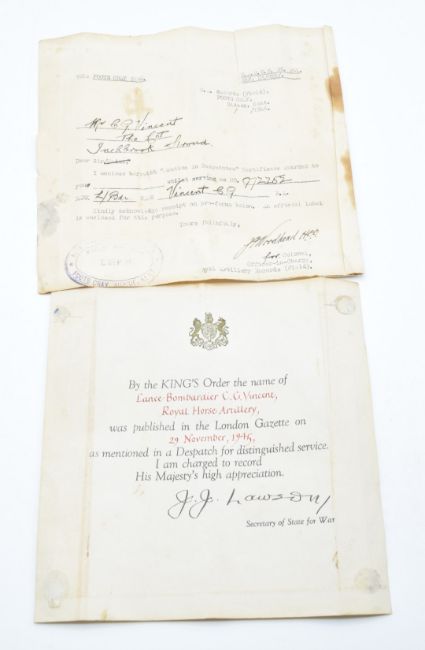 TEL. FOOTS CRAY
FOOTS CRAY,
Mr C. G. Vincent
The Cot
Inchbrook
Dear Sir
I enclose herewith "Mention in Despatches" Certificate awarded to
you whilst serving as NO.
RANK L/Bdr. Vincent C G
Kindly acknowledge receipt on pro-forma below. An official label
is enclosed for this purpose.
Yours faithfully,
for Colonel,
Officer-in-Charge,
Royal Artillery Records (Field).
By the KING'S Order the name of
Lance-Bombardier C. G. Vincent,
Royal Horse Artillery,
was published in the London Gazette on
29 November, 1945,
as mentioned in a Despatch for distinguished service.
I am charged to record
His Majesty's high appreciation.
J. J. Lawson
Secretary of State for War